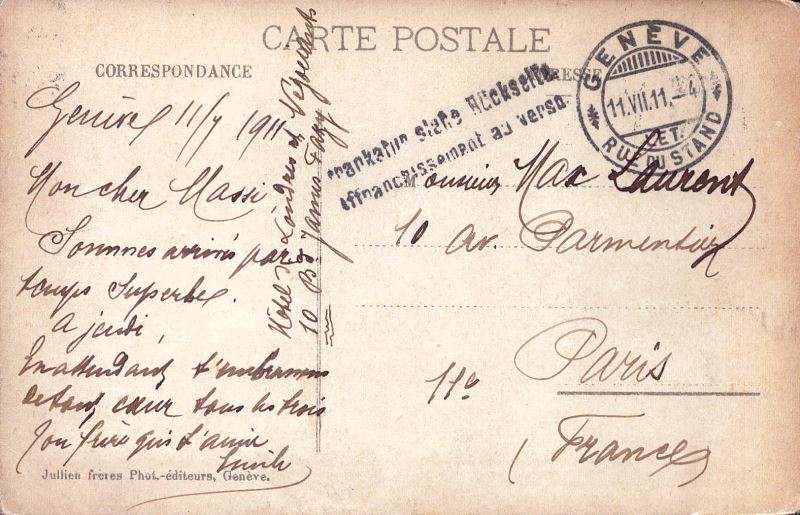 CARTE POSTALE
CORRESPONDANCE
ADRESSE
GENÈVE
11.VII.11.-4
ET.
RUE DU STAND
Frankatur siehe Rückseite
Affranchissement au verso
Genève 11/7 1911
Mon cher Massi
Sommes arrivés par
temps superbe.
A jeudi,
En attendant, t'embrassons
de tout cœur tous les trois
Ton frère qui t'aime
Emile
Hotel de Londres et
10 Bd James Fazy
Monsieur Max Laurent
10 av. Parmentier
Paris
11e
France
Jullien frères Phot.-éditeurs, Genève.